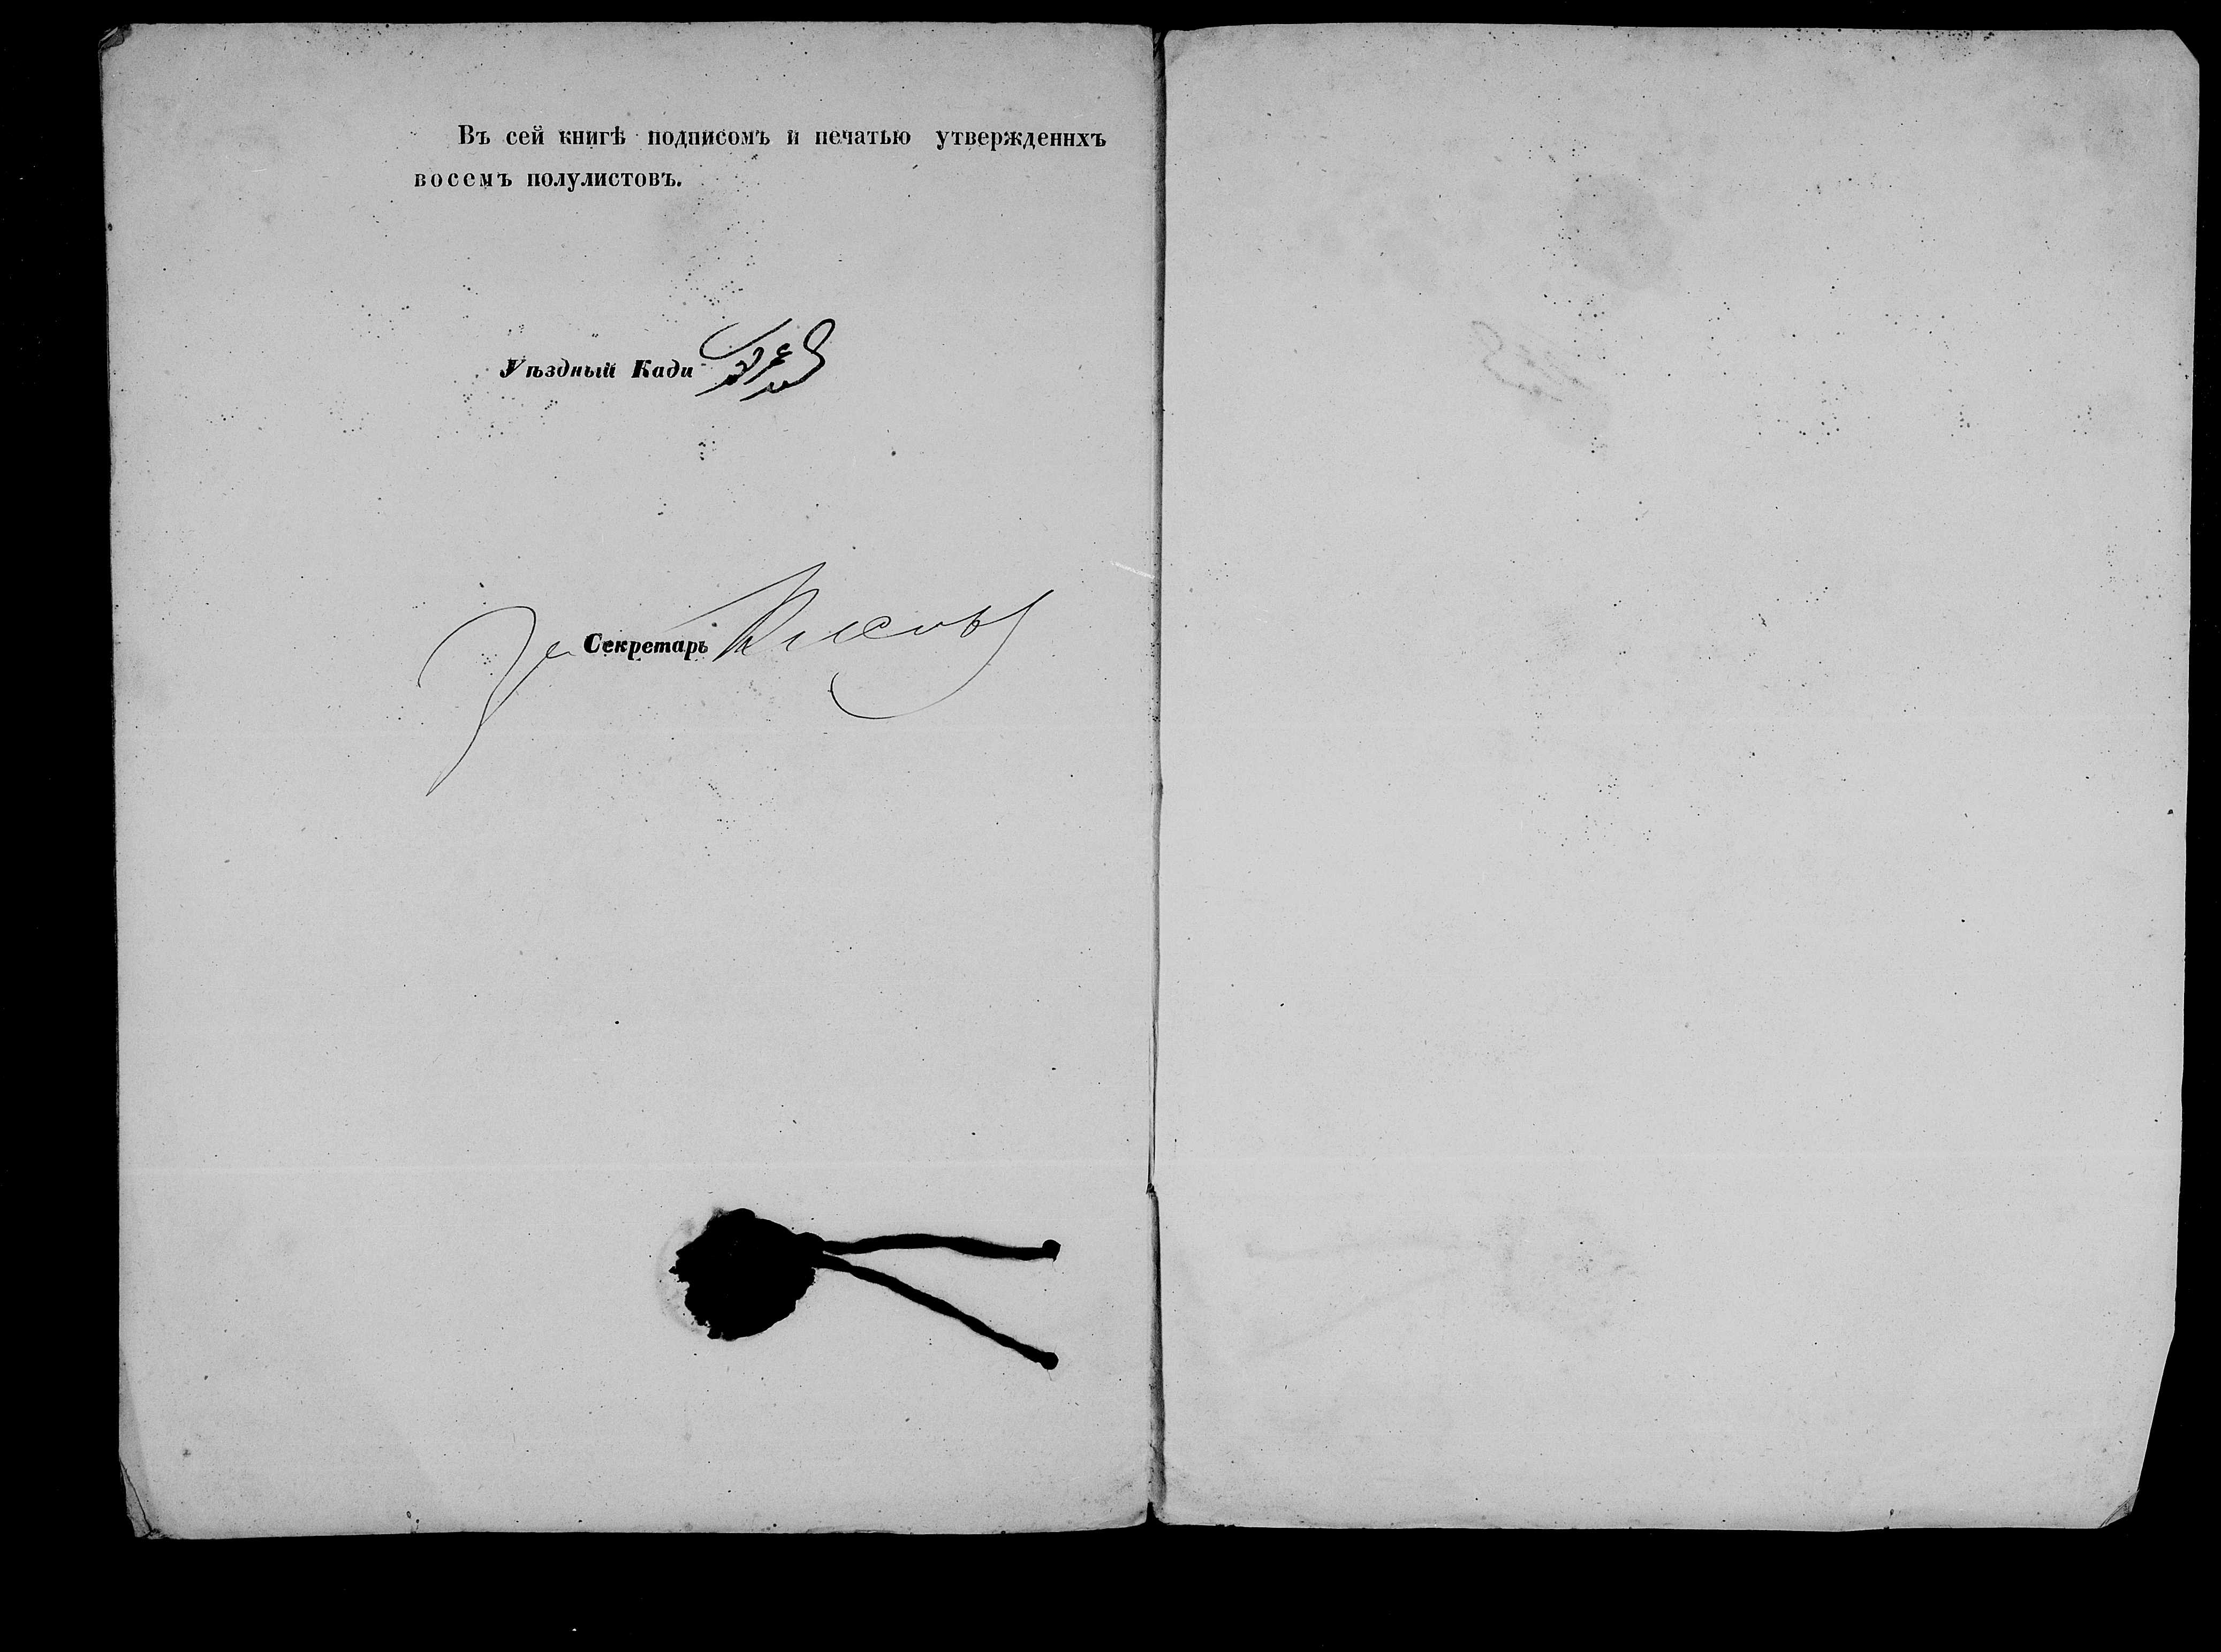 Въ сей книгѣ подписомъ и печатью утвержденнхъ
восемъ полулистовъ.
Уѣздный Кади
За Секретарь